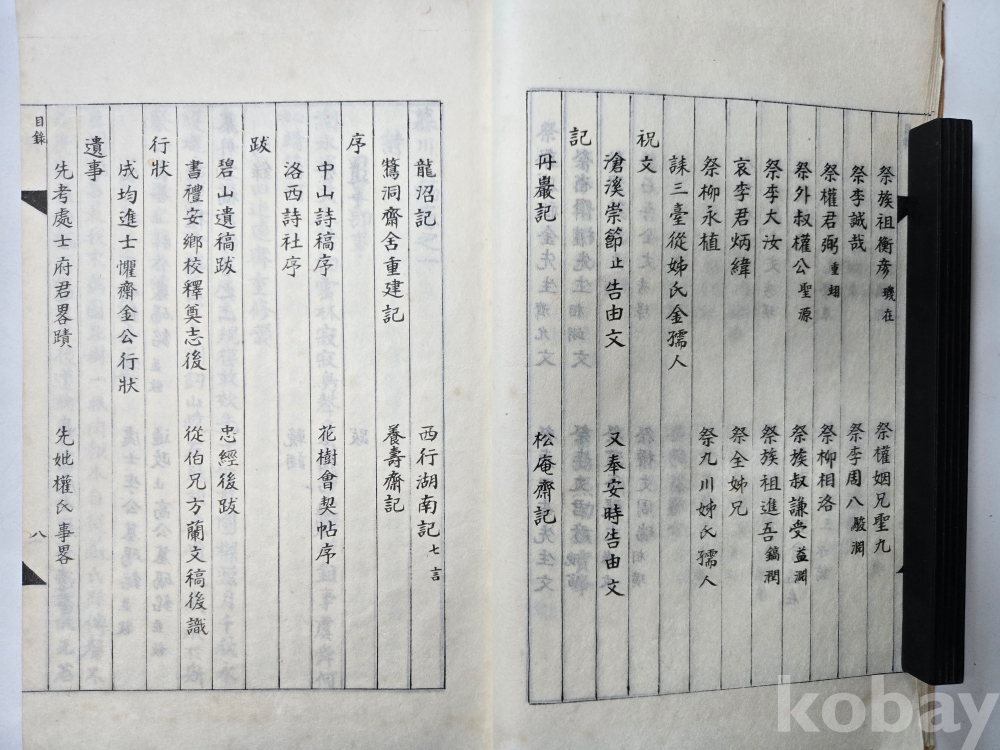 祭族祖衡彦 璣在 祭權姻兄聖九
祭李誠哉 祭李周八 駿潤
祭權君弼 重翊 祭柳相洛
祭外叔權公 聖源 祭族叔謙受 益淵
祭李大汝 祭族祖進吾 鎬潤
哀李君炳緯 祭全姊兄
祭柳永植 祭九川姊氏孺人
誄三臺從姊氏金孺人
祝文
滄溪崇節止告由文 又奉安時告由文
記
丹巖記 松庵齋記
龍沼記 西行湖南記 七言
鶿洞齋舍重建記 養壽齋記
序
中山詩稿序 花樹會契帖序
洛西詩社序
跋
碧山遺稿跋 忠經後跋
書禮安鄉校釋奠志後 從伯兄方蘭文稿後識
行狀
成均進士懼齋金公行狀
遺事
先考處士府君畧蹟 先妣權氏事畧
目錄
八
kobay